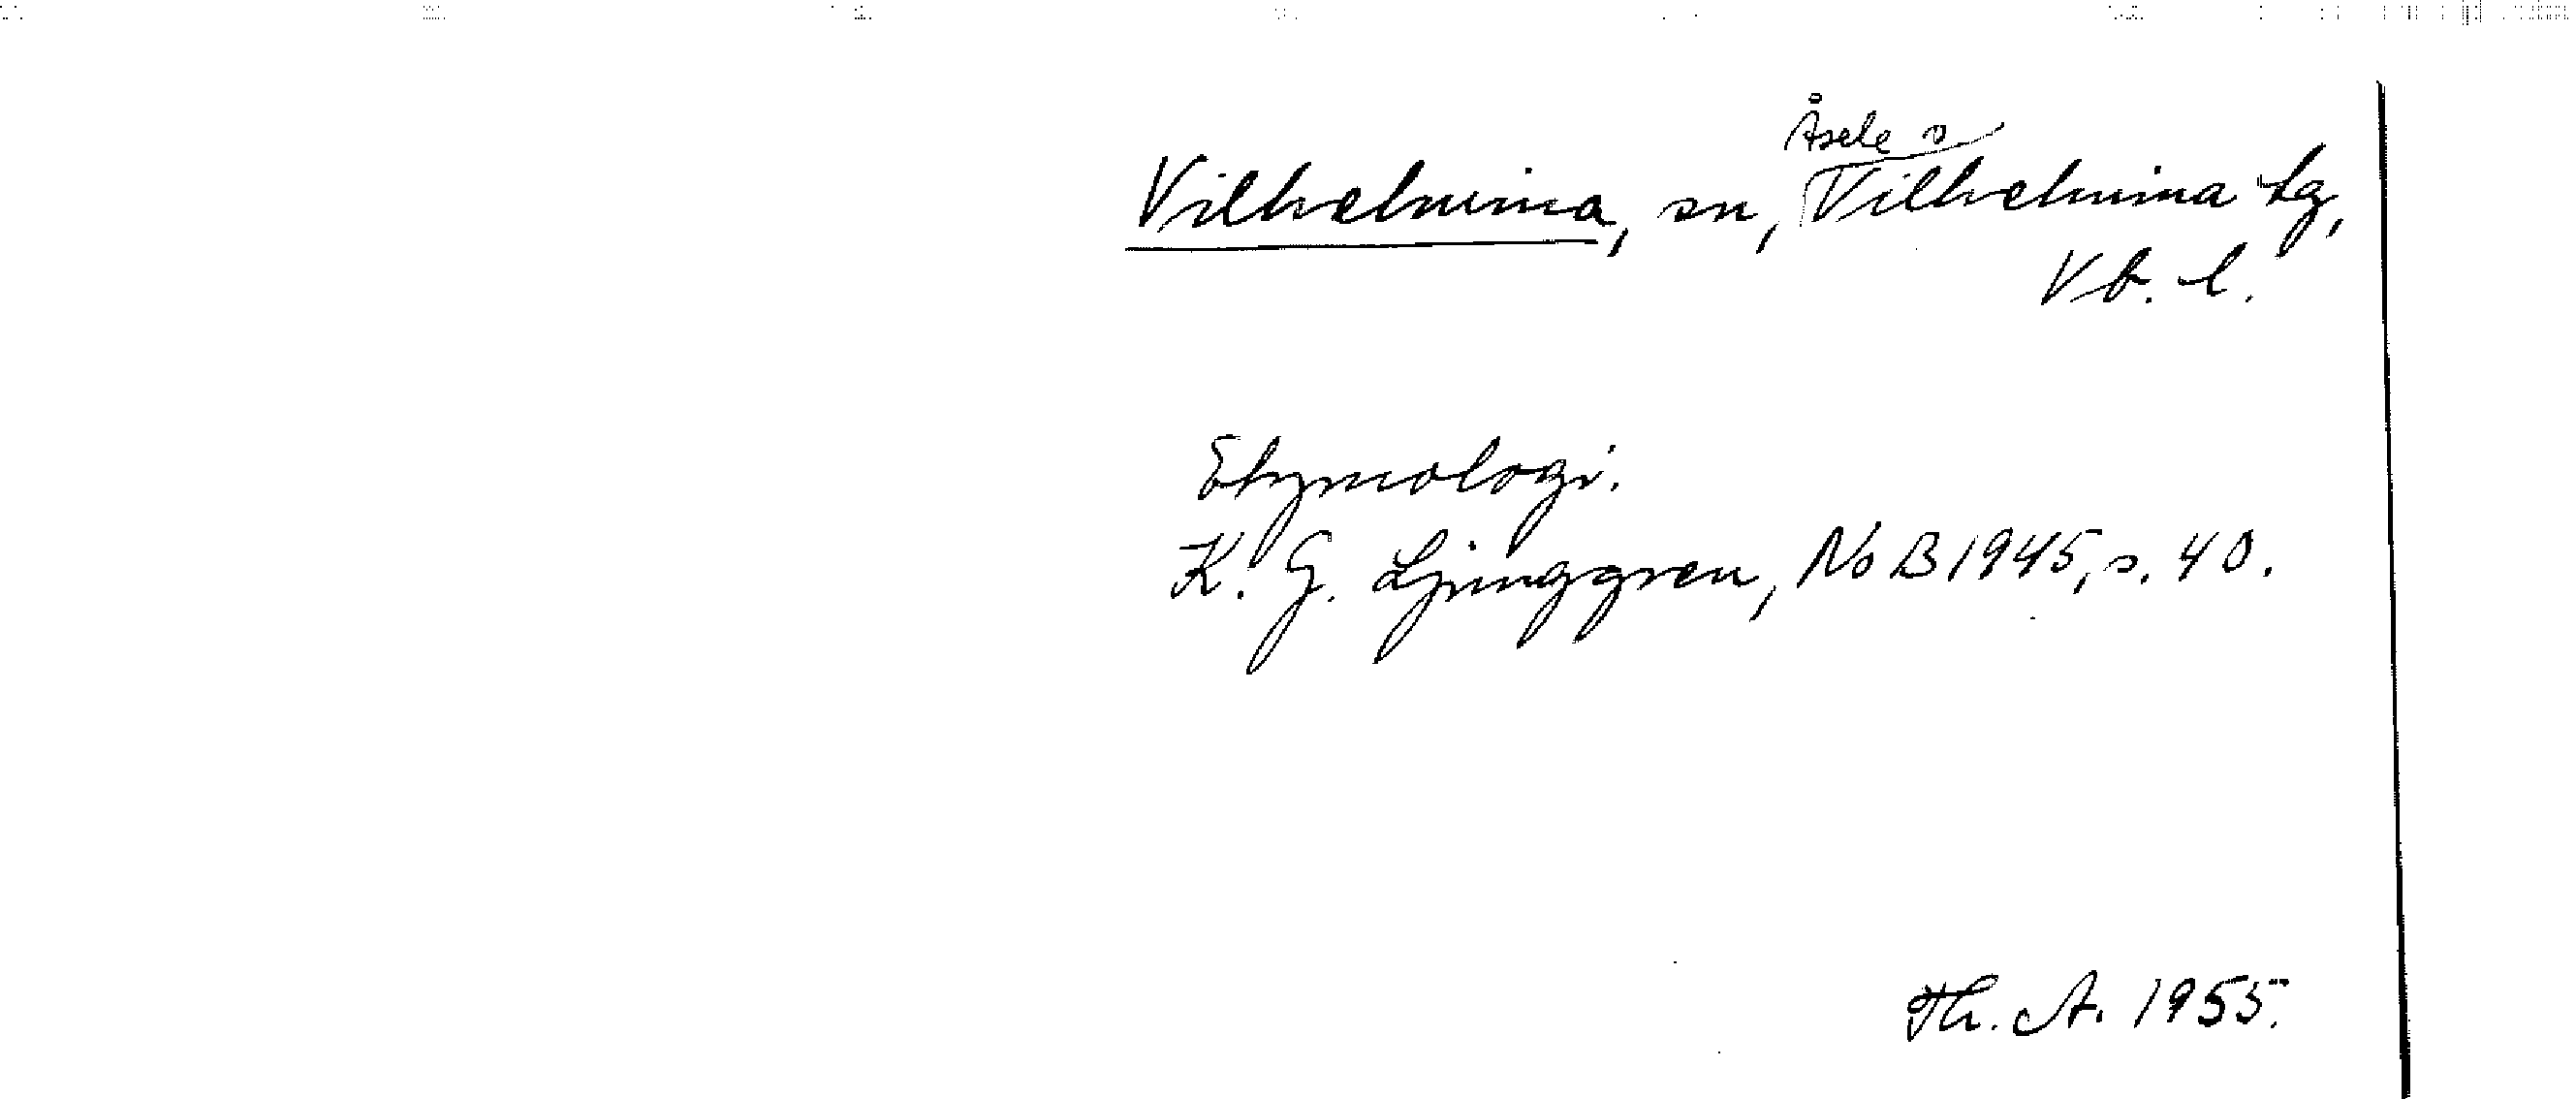 Åsele s
Vilhelmina, sn, Vilhelmina lg,
Vb. l.
Etymologi.
K. G. Ljunggren, NoB 1945, s. 40.
Th. A. 1955.